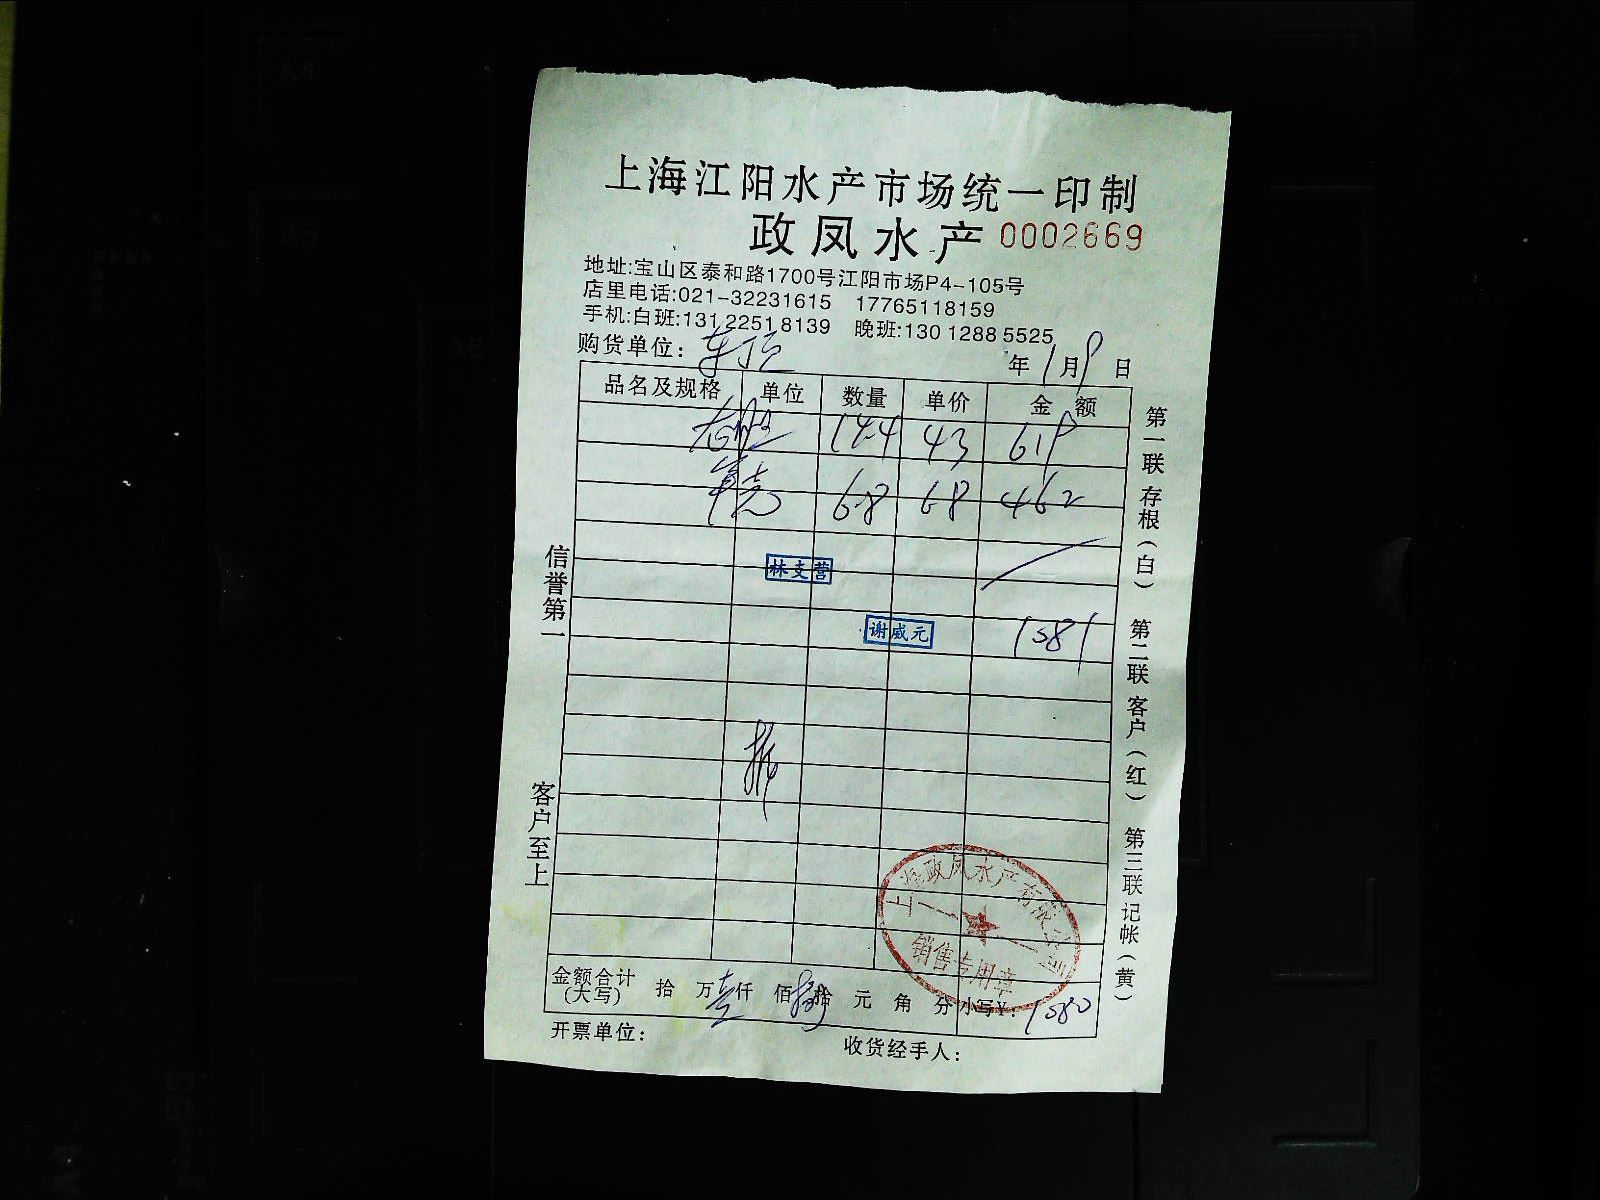 上海江阳水产市场统一印制
政凤水产 0002669
地址:宝山区泰和路1700号江阳市场P4-105号
店里电话:021-32231615 17765118159
手机:白班:131 2251 8139 晚班:130 1288 5525
购货单位: 年 1 月 9 日
品名及规格 单位 数量 单价 金额
14.4 43 619
6.8 68 462
林支营
谢威元 1081
金额合计(大写) 拾 万 壹 仟 佰 捌 拾 元 角 分 小写¥: 1080
开票单位: 收货经手人:
信誉第一 客户至上
第一联 存根(白) 第二联 客户(红) 第三联 记帐(黄)
上海政凤水产有限公司
销售专用章